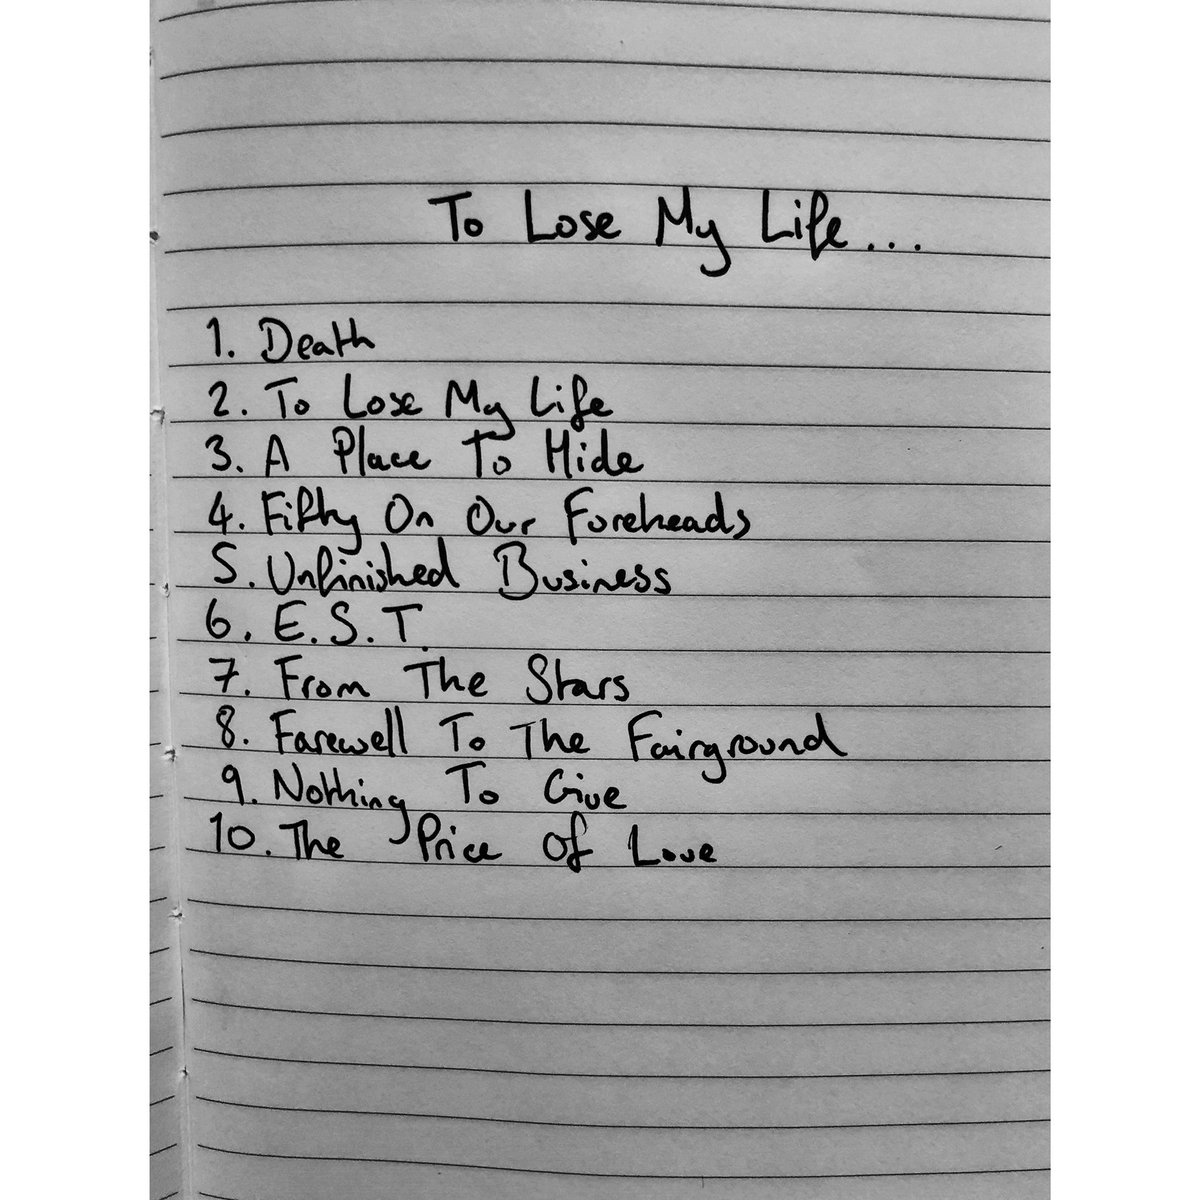 To Lose My Life...
1. Death
2. To Lose My Life
3. A Place To Hide
4. Fifty On Our Foreheads
5. Unfinished Business
6. E.S.T.
7. From The Stars
8. Farewell To The Fairground
9. Nothing To Give
10. The Price Of Love